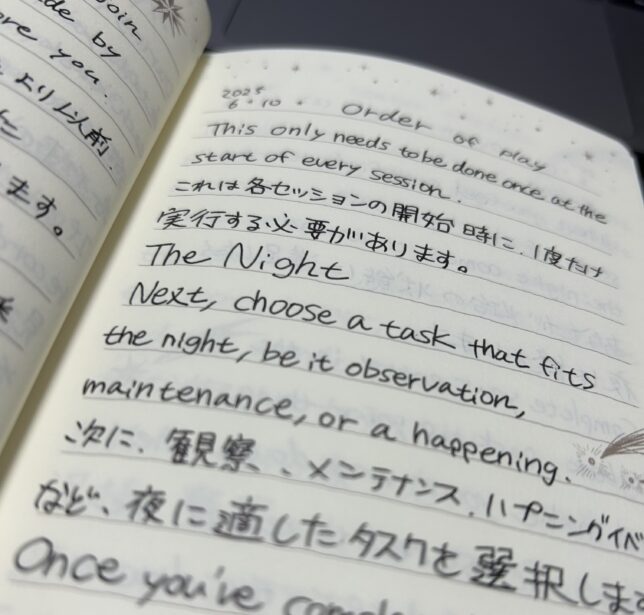 join
de by
ore you.
より以前
ます。
2025
6・10
Order of play
This only needs to be done once at the
start of every session.
これは各セッションの開始時に、1度だけ
実行する必要があります。
The Night
Next, choose a task that fits
the night, be it observation,
maintenance, or a happening.
次に、観察、、メンテナンス、ハプニングイベ
など、夜に適したタスクを選択しま
Once you've comple